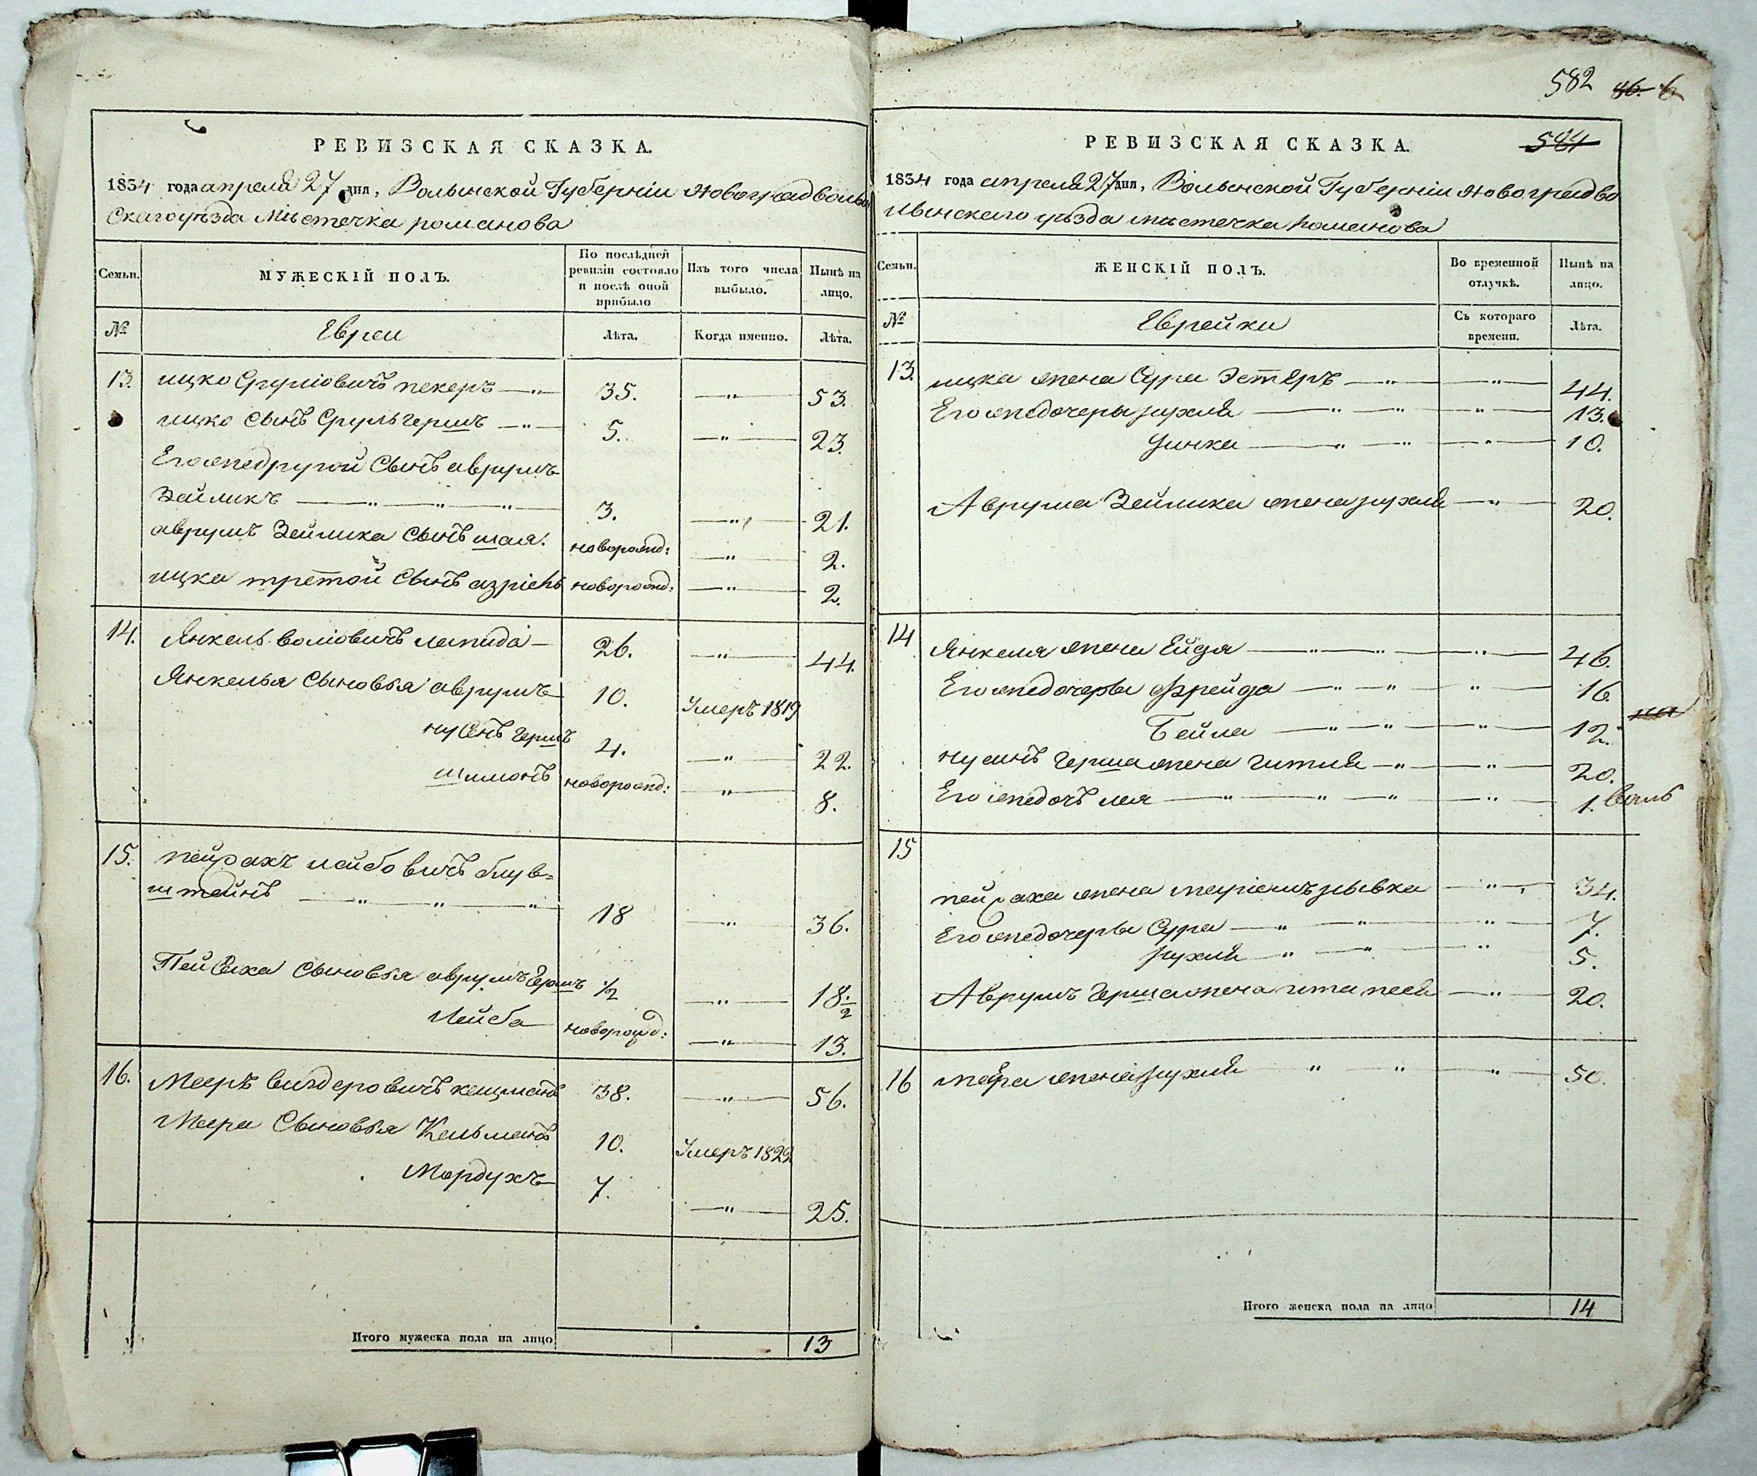 РЕВИЗСКАЯ СКАЗКА.
1834 года апреля 27 дня, Волынской Губерніи Новоградволын
скаго уѣзда мѣстечка романова
Семьи.
МУЖЕСКІЙ ПОЛЪ.
По послѣдней ревизіи состояло и послѣ оной прибыло
Изъ того числа выбыло.
Нынѣ на лицо.
№
Евреи
Лѣта.
Когда именно.
Лѣта.
13. ицко Срулiовичъ пекеръ — " 35. — " — 53.
ицко сынъ Сруль гершъ — " 5. — " — 23.
Его же другой сынъ аврумъ
Зейликъ — " — " — " 3. — " — 21.
аврумъ Зейлика сынъ шая. новорожд: — " — 2.
ицка третой сынъ азріель новорожд: — " — 2.
14. Янкель воліовичъ лапида — 26. — " — 44.
Янкелья сыновья аврумъ — 10. Умеръ 1819
нусенъ гершъ 4. — " — 22.
шимонъ новорожд: — " — 8.
15. пейсахъ лейбовичъ блув=
штейнъ — " — " — " 18 — " — 36.
Пейсаха сыновья аврумъ гершъ 1/2 — " — 18.1/2
Лейба — новорожд: — " — 13.
16. Мееръ вигдеровичъ 38. — " — 56.
Меера сыновья Кельманъ 10. Умеръ 1822
Мордухъ — 7. — " — 25.
Итого мужеска пола на лицо 13
582 86. 6
РЕВИЗСКАЯ СКАЗКА.
584
1834 года апреля 27 дня, Волынской Губерніи Новоградво
лынскаго уѣзда мѣстечка романова
Семьи.
ЖЕНСКІЙ ПОЛЪ.
Во временной отлучкѣ.
Нынѣ на лицо.
№
Еврейки
Съ котораго времени.
Лѣта.
13. ицка жена Сура Эстеръ — " — " — 44.
Его же дочеры рухля — " — " — " — 13.
— " — " — " — 10.
Аврума Зейлика жена рухля — " — 20.
14 Янкеля жена Ейдя — " — " — " — 46.
Его же дочеры фрейда — " — " — " 16.
Бейла — " — " — " — 12.
нусинъ герша жена гитля — " — " — 20.
Его же дочъ лея — " — " — " — " — 1.
15
пейсаха жена маріемъ ривка — " — 34.
Его же дочеры Сура — " — " — " — 7.
рухля — " — " — " 5.
Аврумъ герша жена ита песя — " — 20.
16 меера жена рухля " — " — " — 50.
Итого женска пола на лицо 14